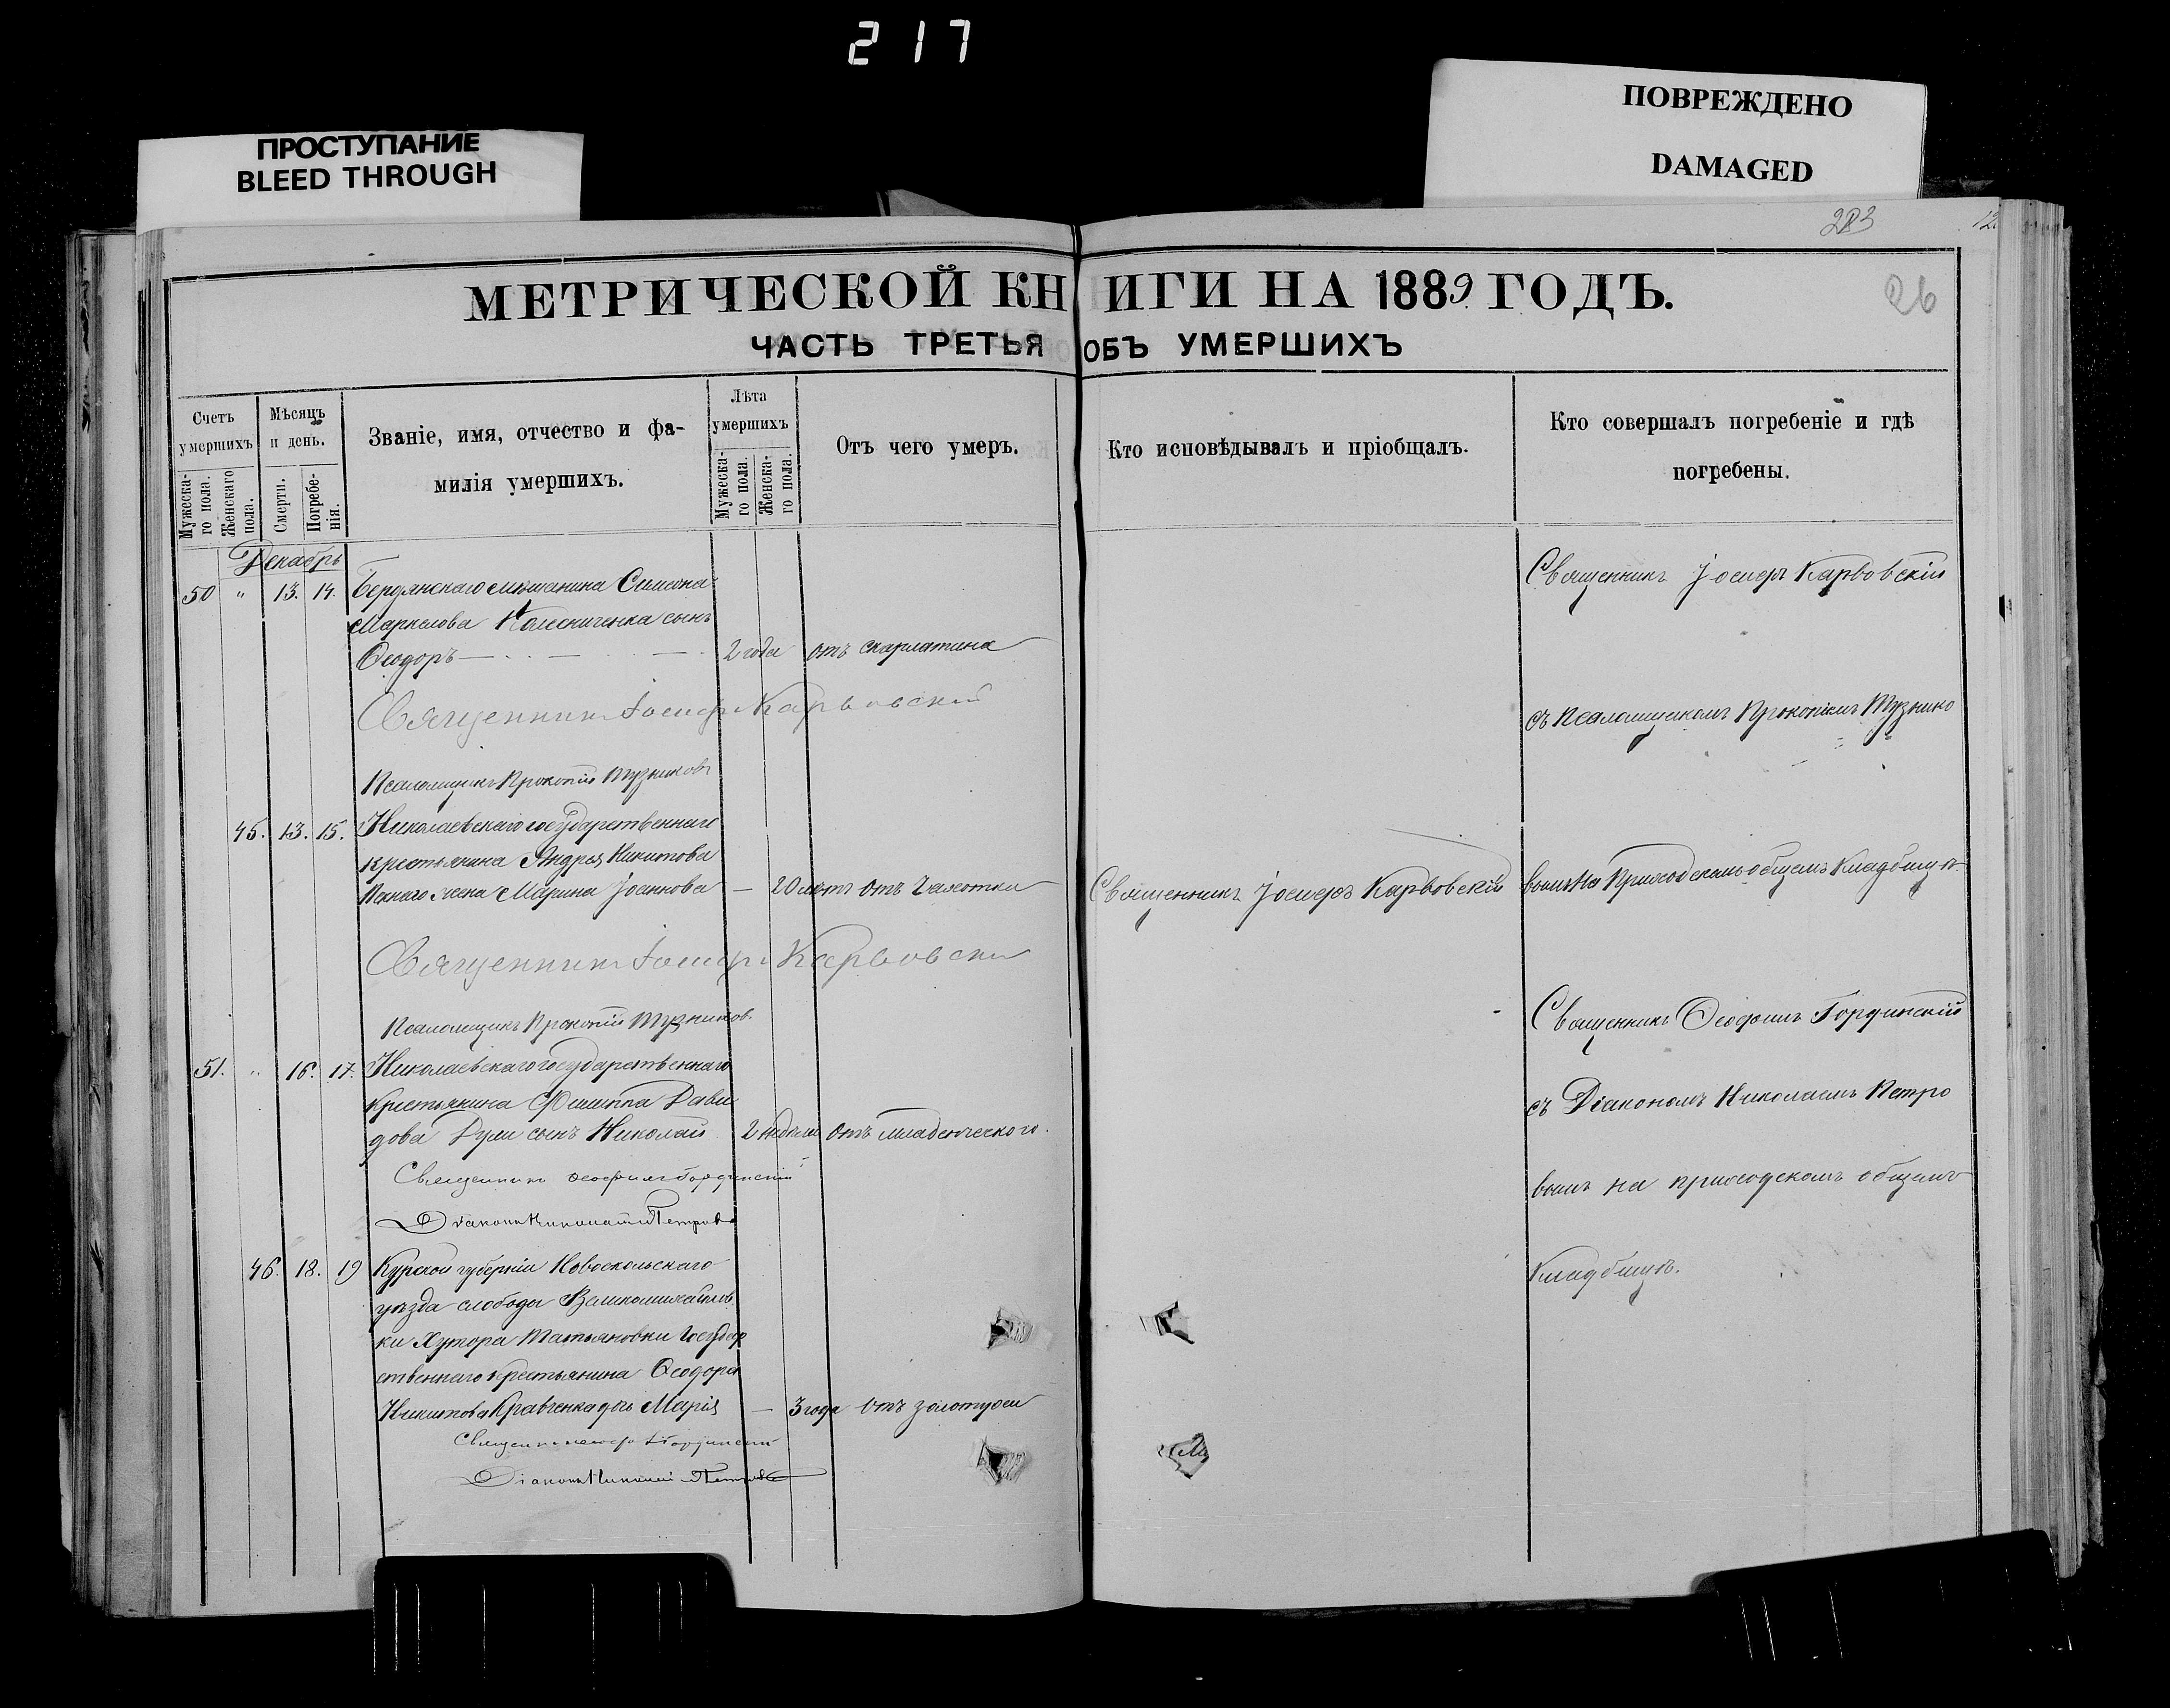 217
ПРОСТУПАНИЕ
BLEED THROUGH
ПОВРЕЖДЕНО
DAMAGED
26
МЕТРИЧЕСКОЙ КНИГИ НА 1889 ГОДЪ.
ЧАСТЬ ТРЕТЬЯ ОБЪ УМЕРШИХЪ
Счетъ
умершихъ
Мужеска-
го пола.
Женскаго
пола.
Мѣсяцъ
и день.
Смерти.
Погребе-
нія.
Званіе, имя, отчество и фа-
милія умершихъ.
Лѣта
умершихъ
Мужеска-
го пола.
Женска-
го пола.
Отъ чего умеръ.
Кто исповѣдывалъ и пріобщалъ.
Кто совершалъ погребеніе и гдѣ
погребены.
Декабрь
50 " 13. 14. Бердянскаго мѣщанина Симеона
Маркелова Колесниченка сынъ
Ѳеодоръ 2 года отъ скарлатина
Священникъ Іосифъ Карвовскій
Псаломщикъ Прокопій
45. 13. 15. Николаевскаго государственнаго
крестьянина Андрея Никитова
жена Марина Іоаннова — 20 лѣтъ отъ чахотки
Священникъ Іосифъ Карвовскій
Псаломщикъ Прокопій
51. " 16. 17. Николаевскаго государственнаго
крестьянина Филиппа Дави
дова Дули сынъ Николай 2 недѣли отъ младенческаго.
Священникъ Ѳеофилъ Гординскій
Діаконъ Николай Петровъ
46. 18. 19 Курской губерніи Новооскольскаго
уѣзда слободы Великомихайлов
ки Хутора Татьяновки Государ
ственнаго крестьянина Ѳеодора
Никитова Кравченка дочь Марія — 3 года отъ золотухи
Священникъ Гординскій
Діаконъ Николай Петровъ
Священникъ Іосифъ Карвовскій
Священникъ Іосифъ Карвовскій
съ Псаломщикомъ Прокопіемъ
вымъ на Приходскомъ общемъ Кладбищѣ.
Священникъ Ѳеофилъ Гординскій
съ Діакономъ Николаемъ Петро
вымъ на приходскомъ общемъ
Кладбищѣ.